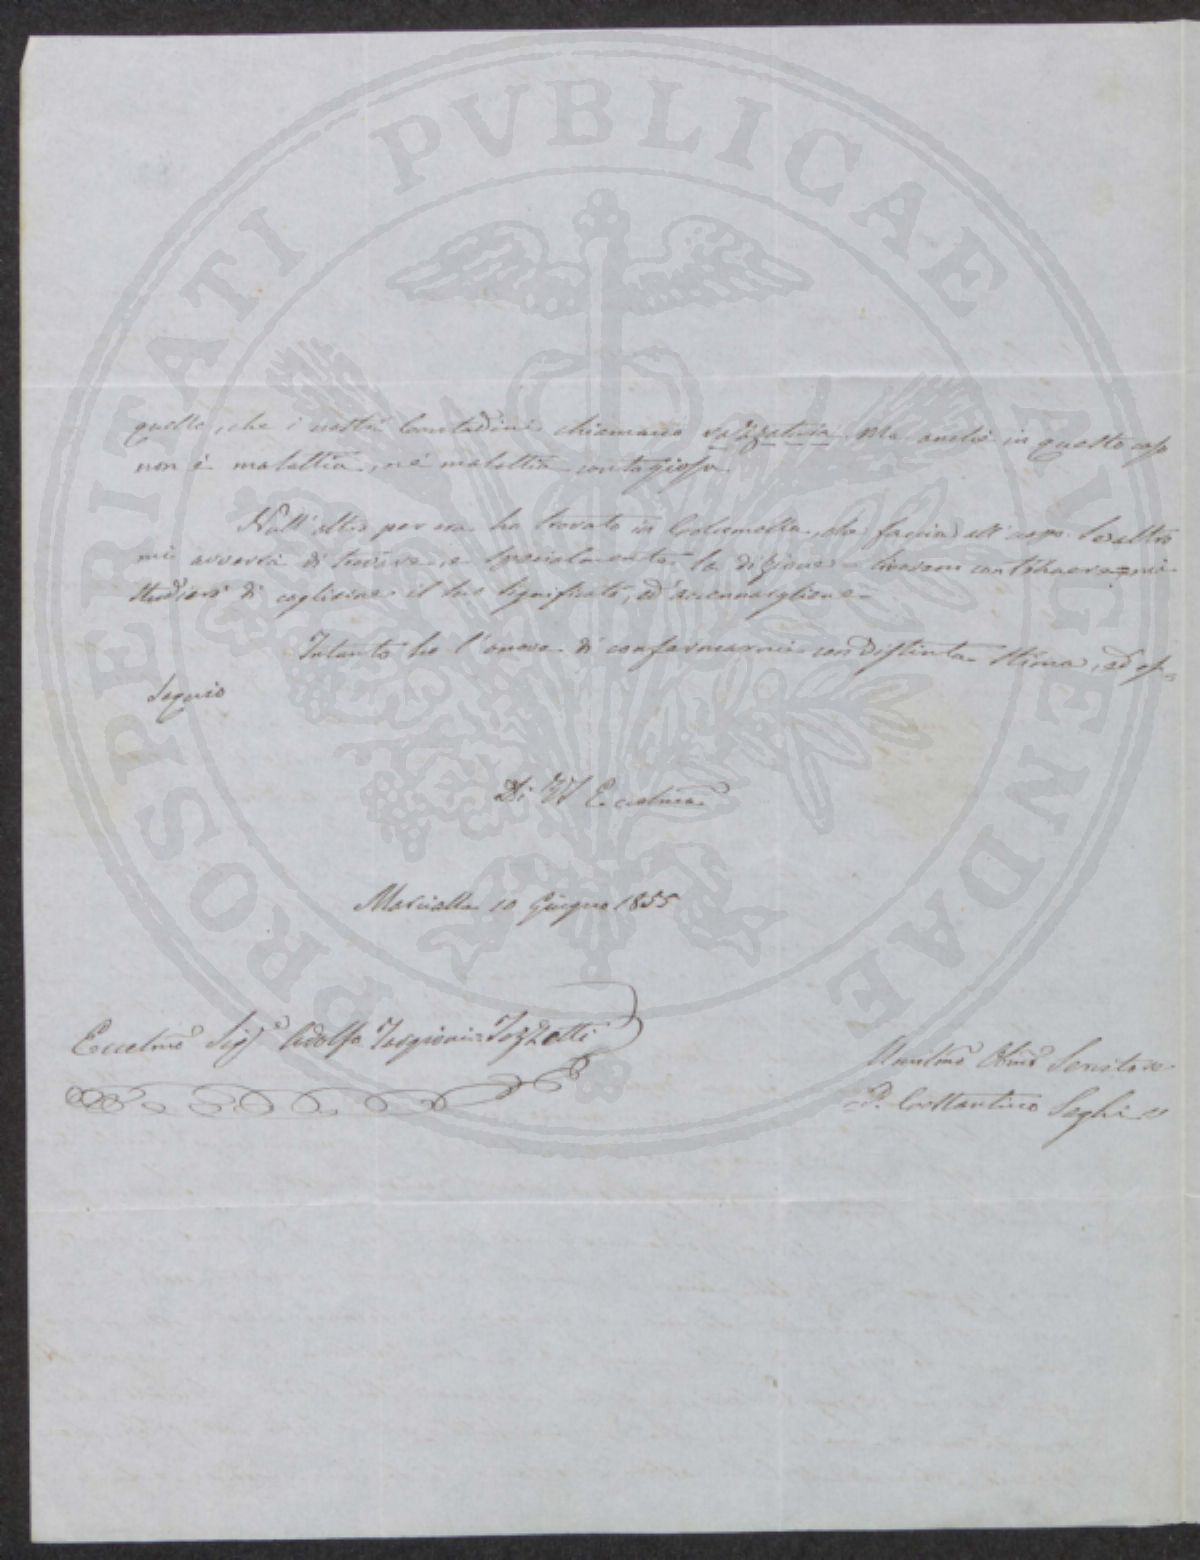 PROSPERITATI PVBLICAE AVGENDAE
quello, che i nostri Contadini chiamano Ma anche in questo caso
non è malattia, nè malattia contagiosa.
Null'altro per ora ho trovato in Columella, che faccia all'uopo. Se altro
mi avverrà di trovare, e specialmente la dizione
di cogliere il suo significato, ed
Intanto ho l'onore di confermarmi con distinta stima, ed os=
sequio
Di VS Eccelma
Marcialla 10 Giugno 1855
Eccelmo Sigre Adolfo Targioni=Tozzetti
Umilmo Obmo Servitore
P. Costantino Seghi